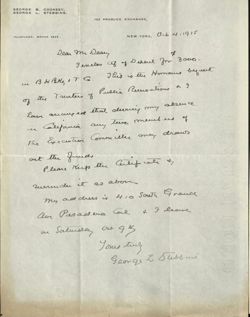 GEORGE B. COOKSEY,
GEORGE L. STEBBINS.
102 PRODUCE EXCHANGE,
NEW YORK, Oct 4, 1915
Dear Mr Deasy
of Deposit for 3000
in B H Bkg & T Co. This is the Homans bequest
of the Trustees of Public Reservations & I
have arranged that during my absence
in California any two members of
the Executive Committee may draw
out the funds.
Please keep the Certificate &
surrender it as above
My address is 410 South Grand
Ave Pasadena Cal & I leave
on Saturday Oct 9th
Yours truly
George L Stebbins